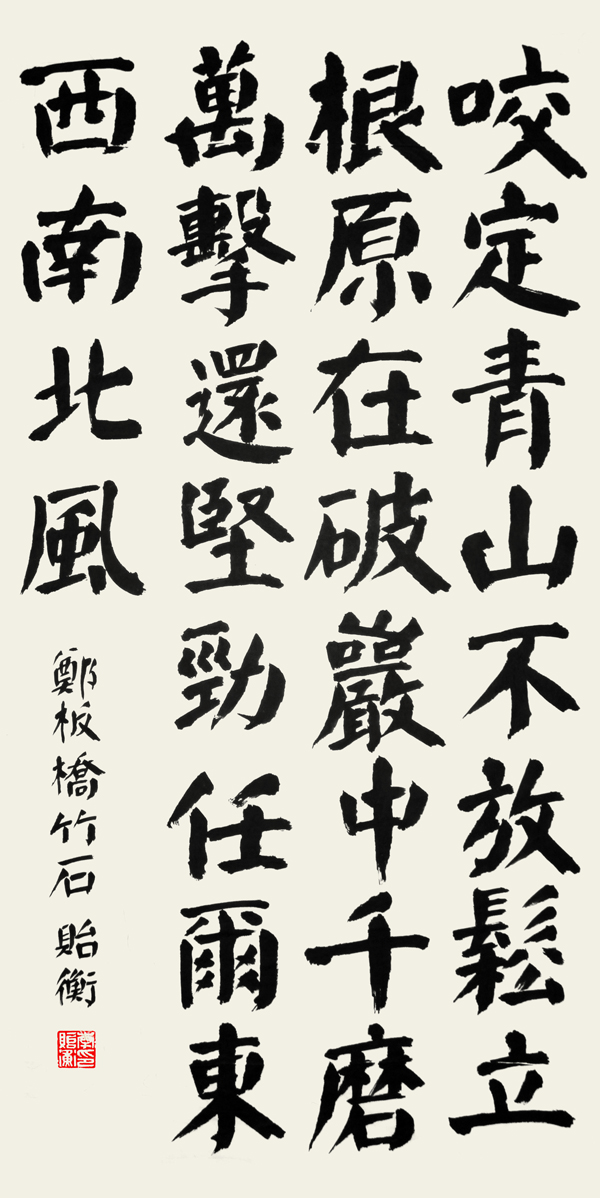 咬定青山不放鬆立
根原在破巖中千磨
萬擊還堅勁任爾東
西南北風
鄭板橋竹石 貽衡